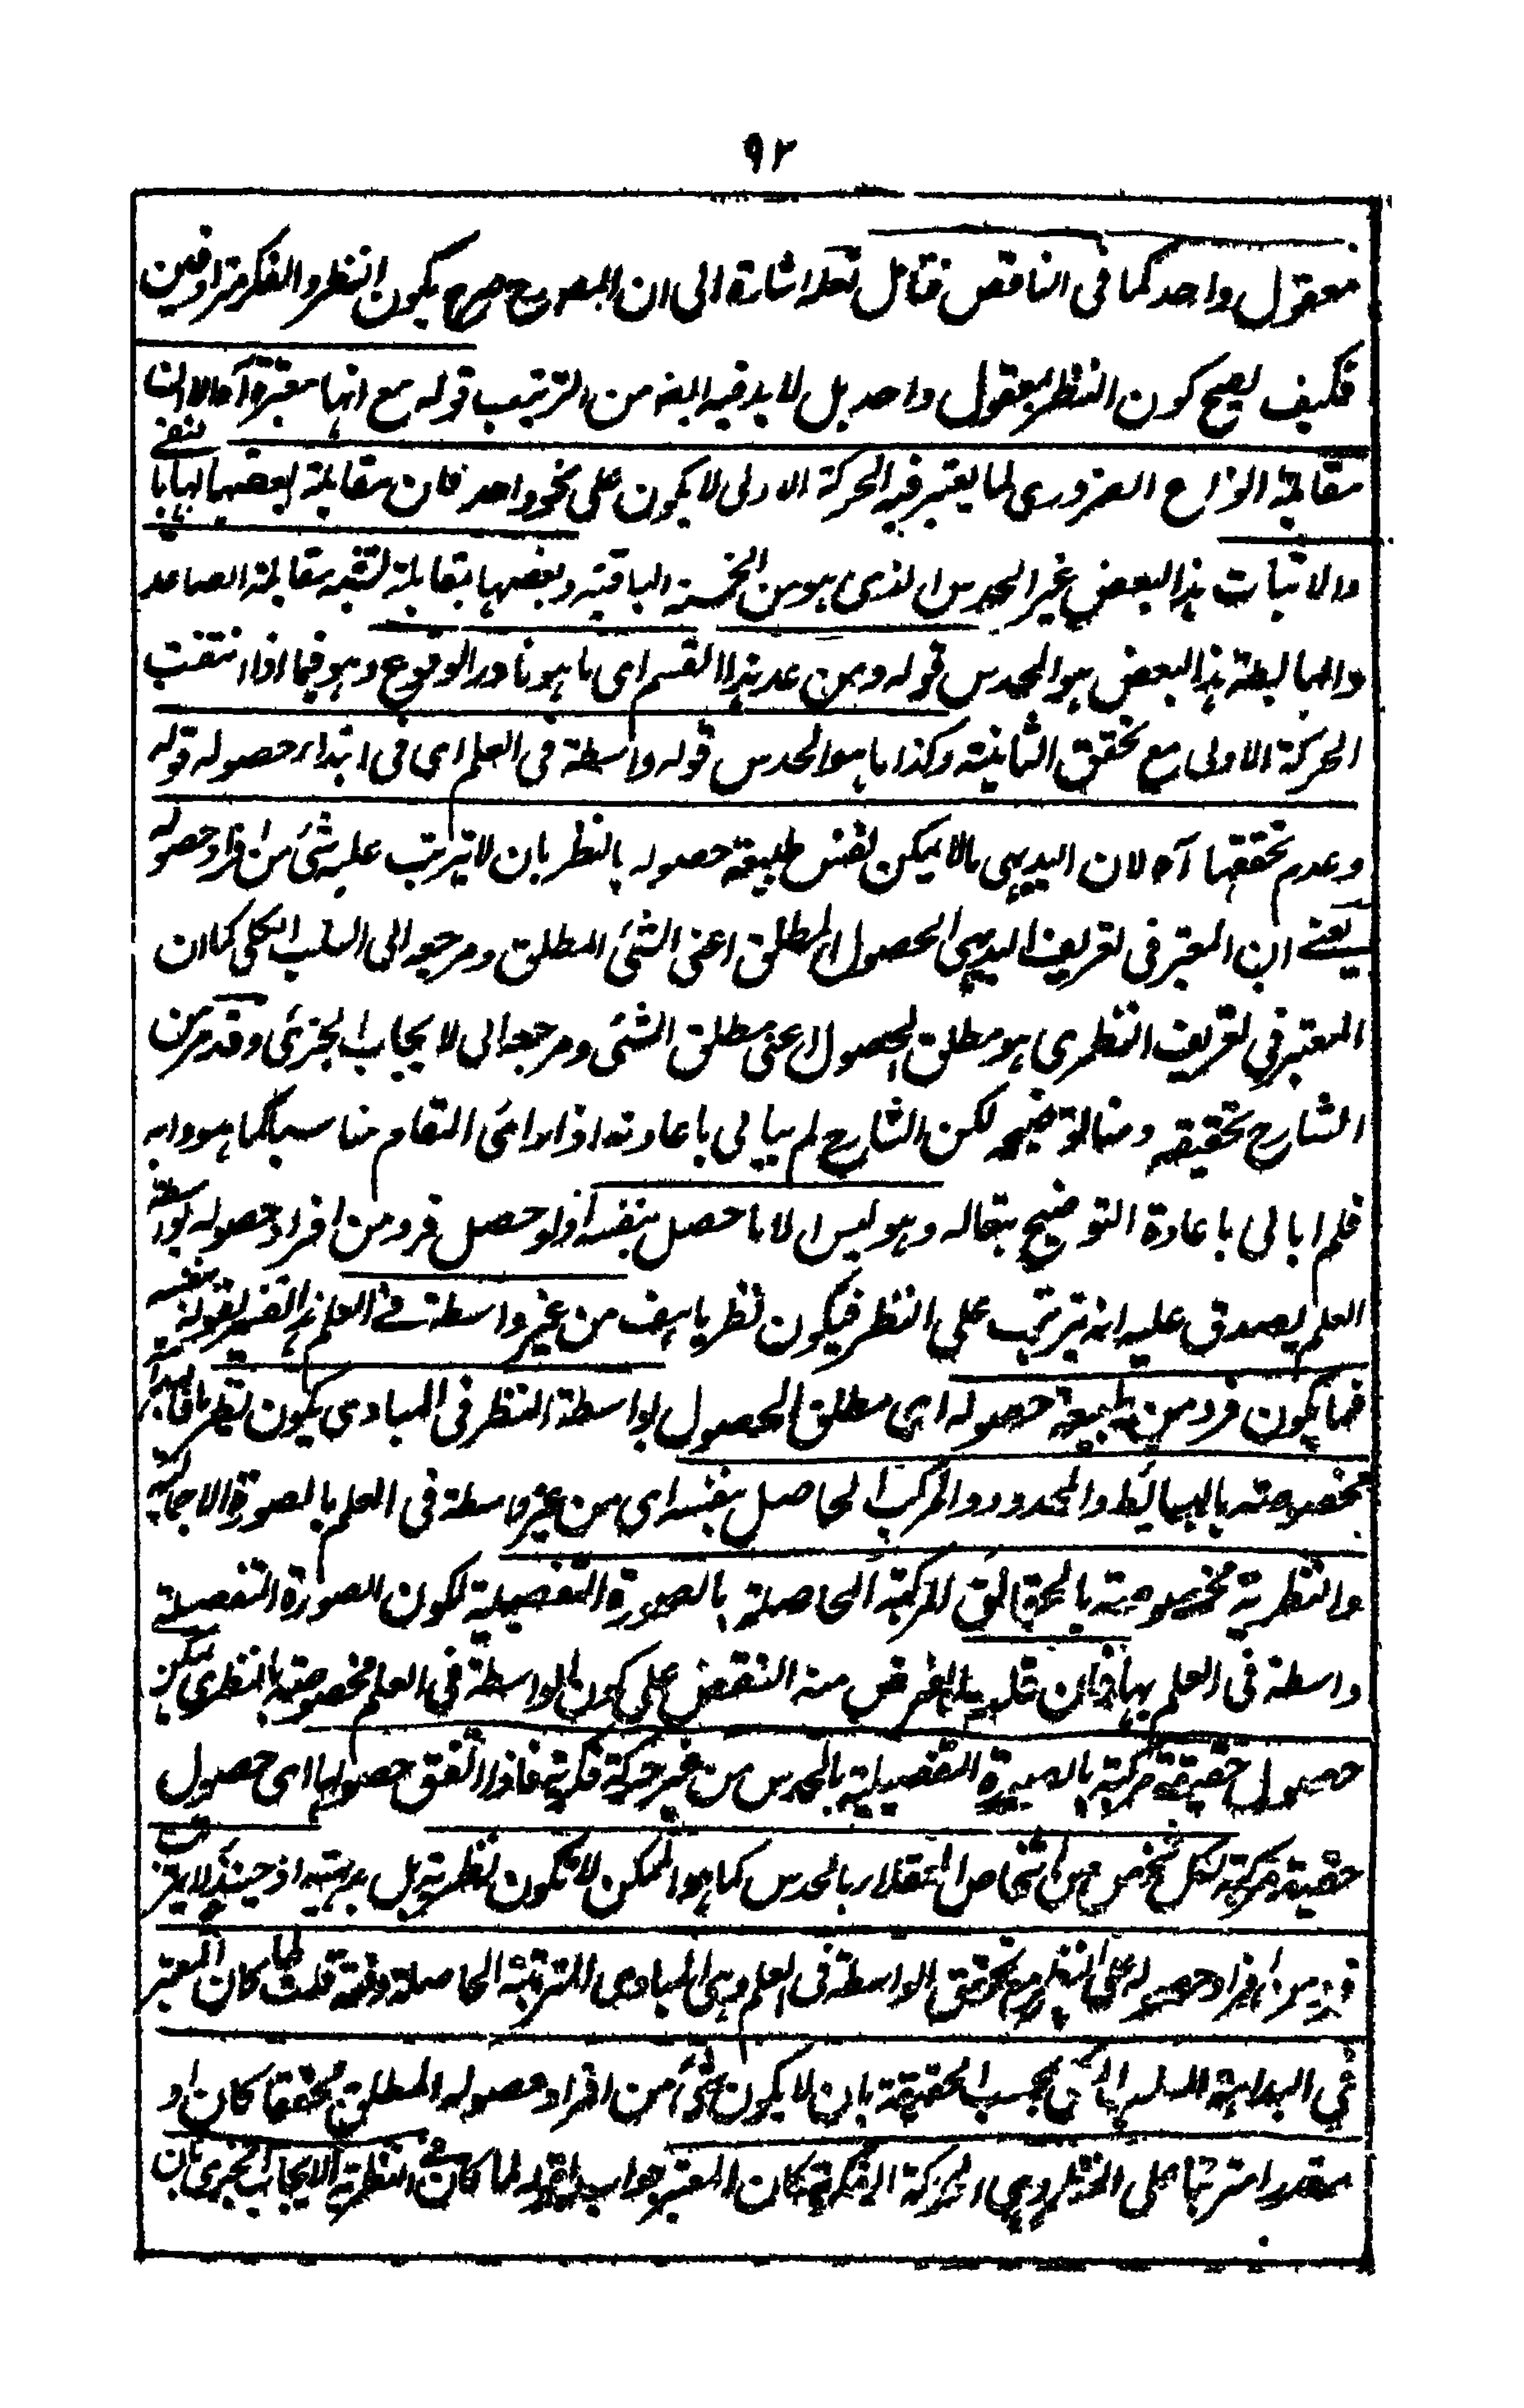 ٩٢
معقول واحد كما فى الناقص فتامل لعله اشارة الى ان المصرح صرح بكون النظر والفكر مترادفين
فكيف يصح كون النظر بمعقول واحد بل لا بد فيه البتة من الترتيب قوله مع انها معتبرة آه لان
مقابلة انواع الضرورى لما يعتبر فيه الحركة الاولى لا يكون على نحو واحد فان مقابلة بعضها لها بالنفى
والاثبات هذا البعض غير الحدس الذى هو من الخمسة الباقية وبعضها بمقابلة تشبه مقابلة الصاعد
والهابطة هذا البعض هو الحدس قوله ومن عد هذا القسم اى ما هو نادر الوقوع وهو فيما اذا انتفت
الحركة الاولى مع تحقق الثانية وكذا ما هو الحدس قوله واسطة فى العلم اى فى ابتداء حصوله قوله
وعدم تحققها آه لان البديهى ما لا يمكن لنفس طبيعة حصوله بالنظر بان لا يترتب عليه شئ من افراد حصوله
يعنے ان المعتبر فى تعريف البديهى الحصول المطلق اعنى الشئ المطلق ومرجعه الى السلب الكلى كما ان
المعتبر فى تعريف النظرى هو مطلق الحصول اعنى مطلق الشئ ومرجعه الى الايجاب الجزئى وقد مر من
الشارح تحقيقه ومنا توضيحه لكن الشارح لم يبالى باعادته اذا راى المقام مناسبا كما هو دابه
فلم ابالى باعادة التوضيح بتعاله وهو ليس الا ما حصل بنفسه اذ لو حصل فرد من افراد حصوله بواسطة
العلم يصدق عليه انه يترتب على النظر فيكون نظريا هف من غير واسطة فے العلم هذا تفسير لقوله بنفسه
فما يكون فرد من طبيعة حصوله اى مطلق الحصول بواسطة النظر فى المبادى يكون نظريا فالبداهة
مخصوصة بالبسائط والمحدود والمركب الحاصل بنفسه اى من غير واسطة فى العلم بالصورة الاجمالية
والنظرية مخصوصة بالحقائق المركبة الحاصلة بالصورة التفصيلية لكون الصورة التفصيلية
واسطة فى العلم بها فان قلت الغرض منه النقض على كون الواسطة فى العلم مخصوصة بالنظرى يمكن
حصول حقيقة مركبة بالصورة التفصيلية بالحدس من غير حركة فكرية فاذا اتفق حصولها اى حصول
حقيقة مركبة لكل شخص من اشخاص العقلاء بالحدس كما هو الممكن لا تكون نظرية بل بديهية اذ حينئذ لا يترتب
فرد من افراد حصوله على النظر مع تحقق الواسطة فى العلم وهى المبادى المترتبة الحاصلة دفعة قلت لما كان المعتبر
فى البداهة السلب الكلى بحسب الحقيقة بان لا يكون شئ من افراد حصوله المطلق محققا كان او
مقدرا مترتبا على النظر وهى الحركة الفكرية كان المعتبر جواب لقوله لما كان فے النظرية الايجاب الجزئى بان